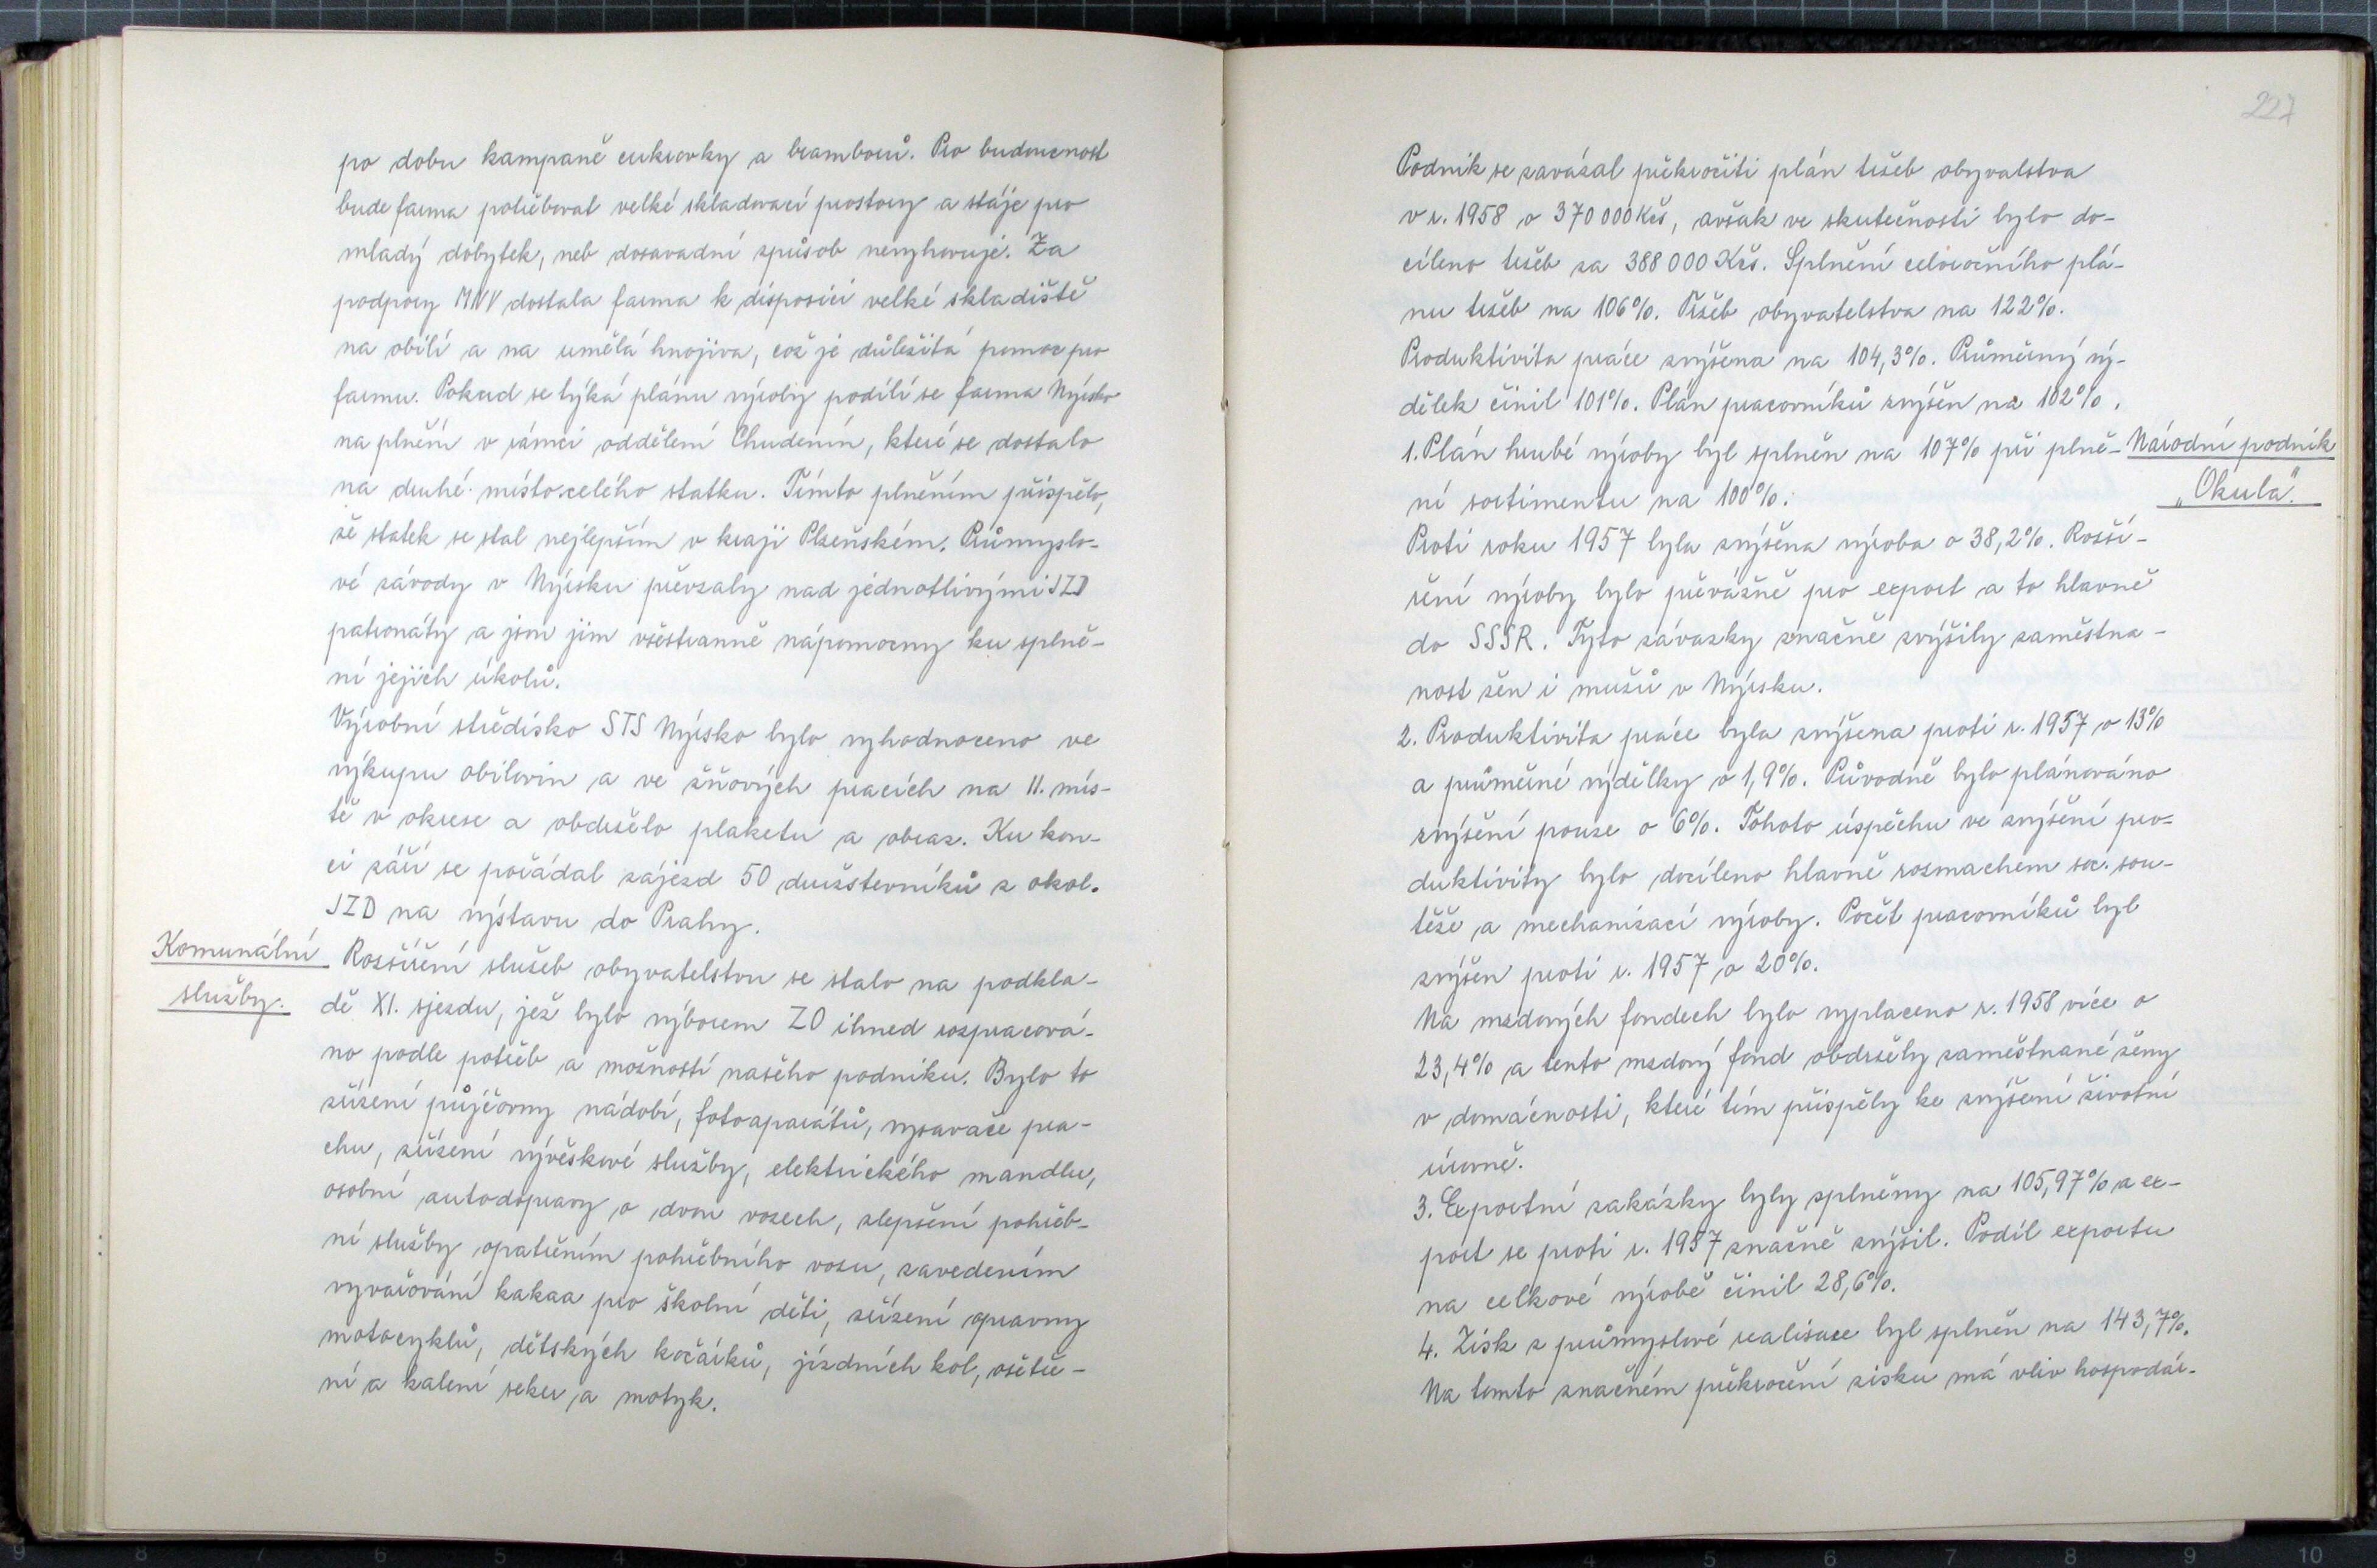 po dobu kampaně cukrovky a bramborů. Pro budoucnost
bude farma potřebovat velké skladovací prostory a stáje pro
mladý dobytek, neb dosavadní způsob nevyhovuje. Za
podpory MNV dostala farma k disposici velké skladiště
na obilí a na umělá hnojiva, což je důležitá pomoc pro
farmu. Pokud se týká plánu výroby podílí se farma Nýrsko
na plnění v rámci oddělení Chudenín, které se dostalo
na druhé místo celého statku. Tímto plněním přispělo,
že statek se stal nejlepším v kraji Plzeňském. Průmyslo-
vé závody v Nýrsku převzaly nad jednotlivými JZD
patronáty a jsou jim všestranně nápomocny ku splně-
ní jejich úkolů.
Výrobní středisko STS Nýrsko bylo vyhodnoceno ve
výkupu obilovin a ve žňových pracích na II. mís-
tě v okrese a obdrželo plaketu a obraz. Ku kon-
ci září se pořádal zájezd 50 družstevníků z okol.
JZD na výstavu do Prahy.
Komunální
služby.
Rozšíření služeb obyvatelstvu se stalo na podkla-
dě XI. sjezdu, jež bylo výborem ZO ihned rozpracová-
no podle potřeb a možností našeho podniku. Bylo to
zřízení půjčovny nádobí, fotoaparátů, vysavače pra-
chu, zřízení vývěskové služby, elektrického mandlu,
osobní autodopravy o dvou vozech, zlepšení pohřeb-
ní služby opatřením pohřebního vozu, zavedením
vyvařování kakaa pro školní děti, zřízení opravny
motocyklů, dětských kočárků, jízdních kol, ostře-
ní a kalení seker a motyk.
227
Podnik se zavázal překročiti plán tržeb obyvalstva
v r. 1958 o 370 000 Kčs, avšak ve skutečnosti bylo do-
cíleno tržeb za 388 000 Kčs. Splnění celoročního plá-
nu tržeb na 106%. Tržeb obyvatelstva na 122%.
Produktivita práce zvýšena na 104,3%. Průměrný vý-
dělek činil 101%. Plán pracovníků zvýšen na 102%.
Národní podnik
„Okula".
1. Plán hrubé výroby byl splněn na 107% při plně-
ní sortimentu na 100%.
Proti roku 1957 byla zvýšena výroba o 38,2%. Rozší-
ření výroby bylo převážně pro export a to hlavně
do SSSR. Tyto závazky značně zvýšily zaměstna-
nost žen i mužů v Nýrsku.
2. Produktivita práce byla zvýšena proti r. 1957 o 13%
a průměrné výdělky o 1,9%. Původně bylo plánováno
zvýšení pouze o 6%. Tohoto úspěchu ve zvýšení pro-
duktivity bylo docíleno hlavně rozmachem soc. sou-
těže a mechanisací výroby. Počet pracovníků byl
zvýšen proti r. 1957 o 20%.
Na mzdových fondech bylo vyplaceno r. 1958 více o
23,4% a tento mzdový fond obdržely zaměstnané ženy
v domácnosti, které tím přispěly ke zvýšení životní
úrovně.
3. Exportní zakázky byly splněny na 105,97% a ex-
port se proti r. 1957 značně zvýšil. Podíl exportu
na celkové výrobě činil 28,6%.
4. Zisk z průmyslové realisace byl splněn na 143,7%.
Na tomto značném překročení zisku má vliv hospodár-